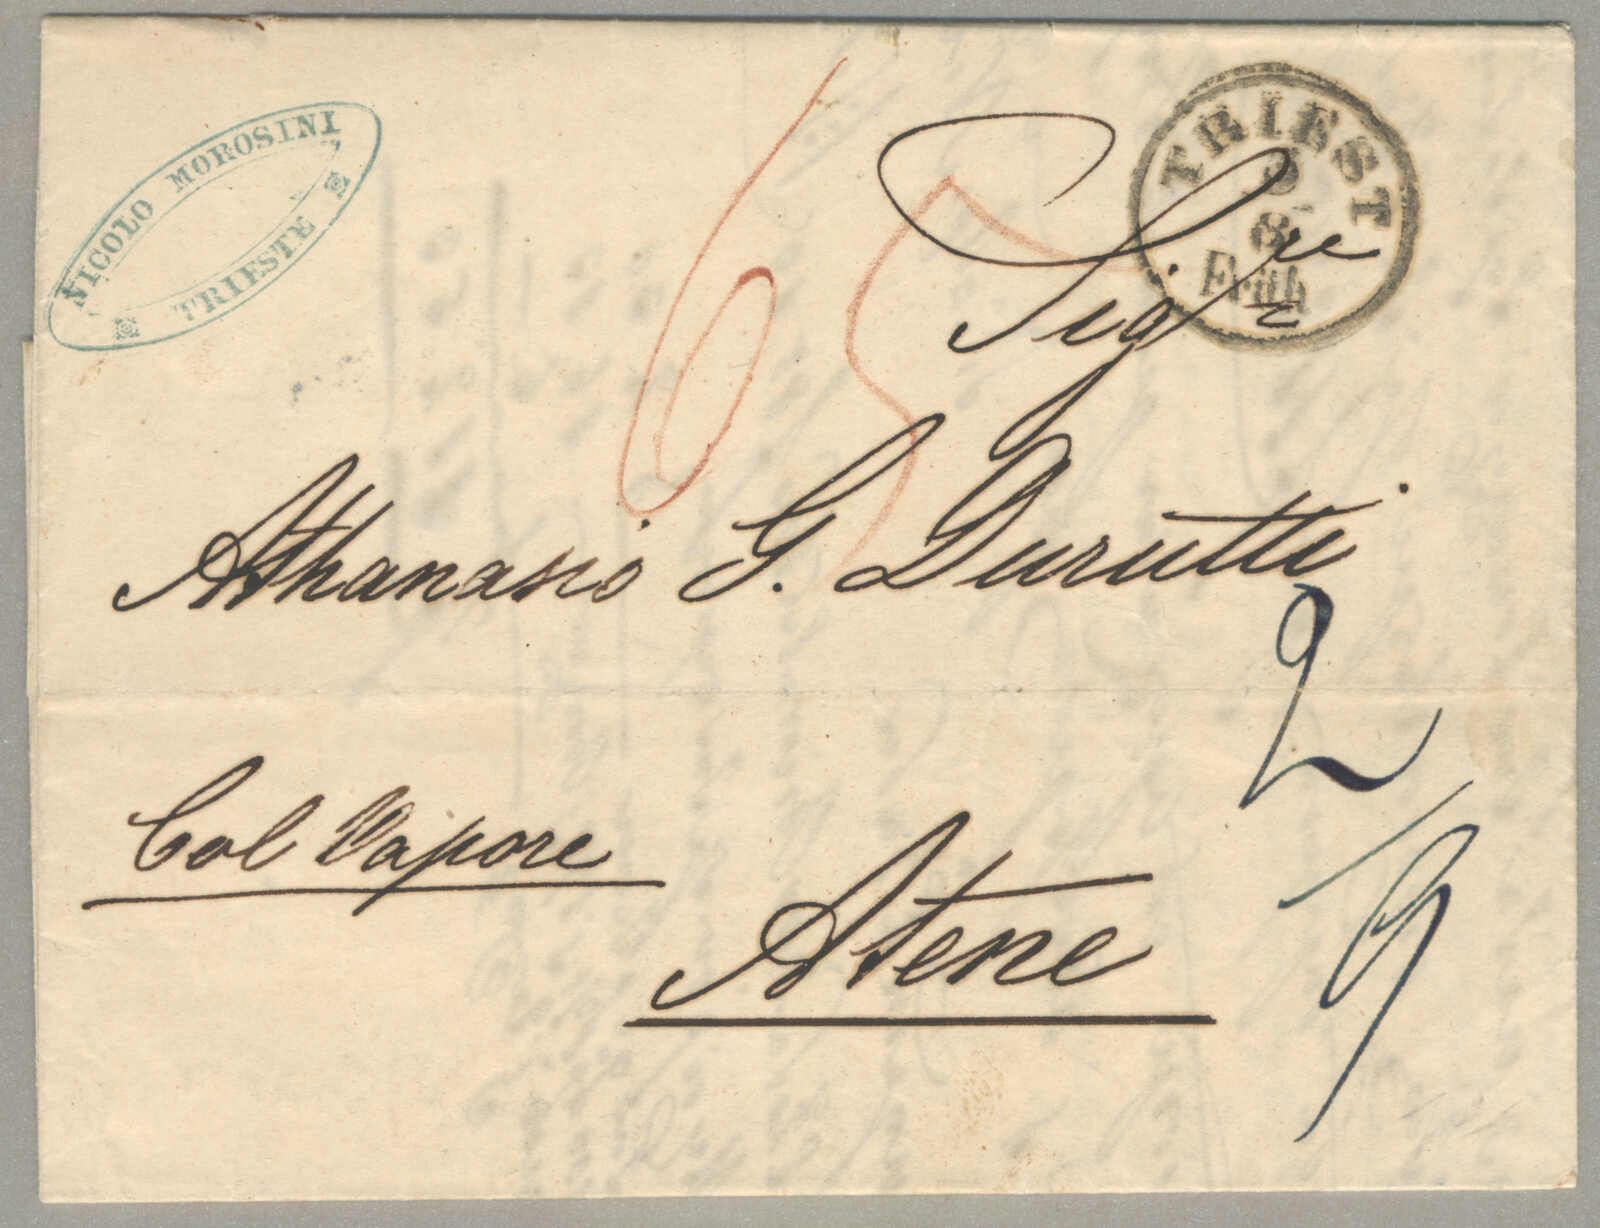 NICOLO MOROSINI
TRIESTE
TRIEST
5
8
Früh
65
Sig.re
Athanasio G. Durutti
2
9
Col Vapore
Atene